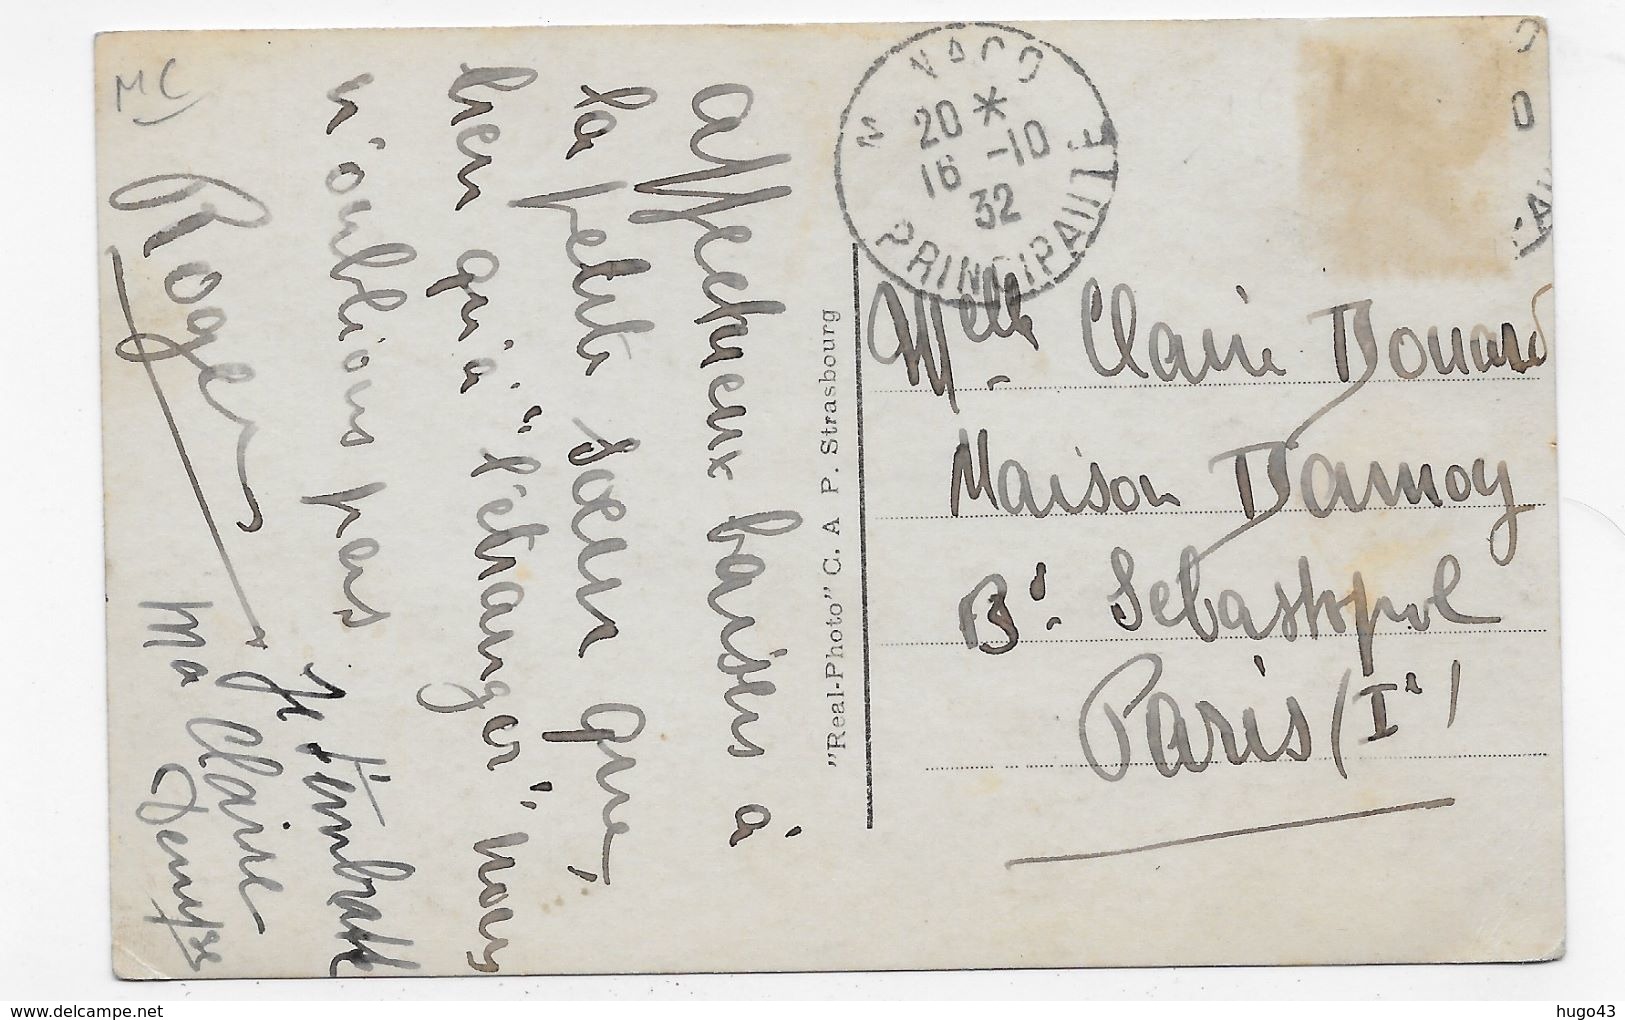 MC
Affectueux baisers à
la petite soeur que,
bien qu'à "l'étranger" nous
n'oublions pas
Roger
Je t'embrasse
Ma Claire
Denyse
"Real-Photo" C. A. P. Strasbourg
MONACO
20 *
16 -10
32
PRINCIPAUTE
Melle Claire Douard
Maison Damoy
Bd Sebastopol
Paris (Ier)
hugo43